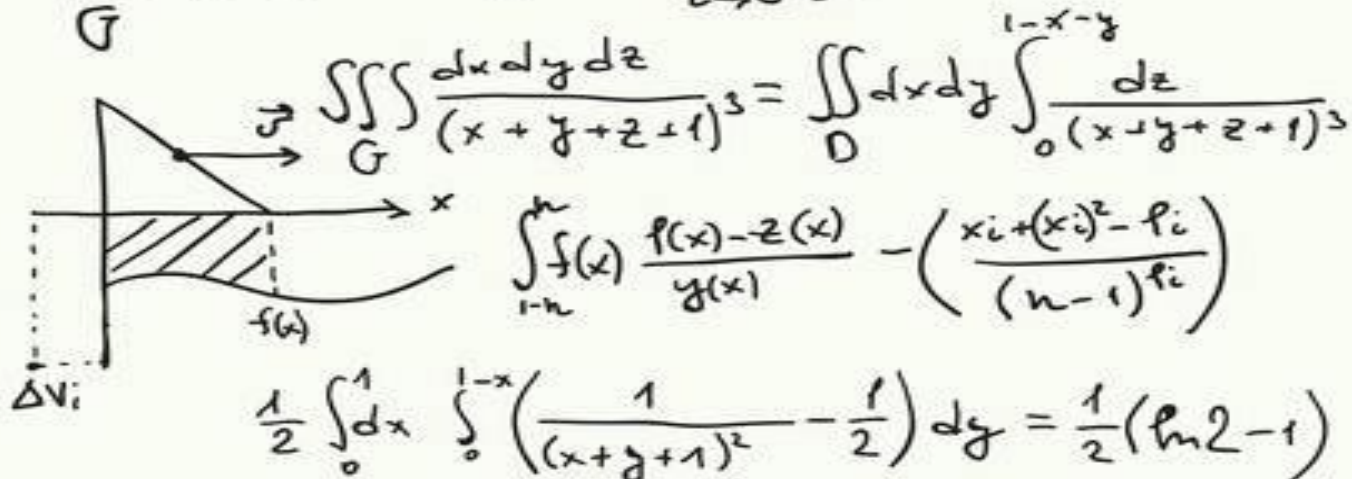 G
∭_G dx dy dz / (x + y + z + 1)³ = ∬_D dx dy ∫₀^{1-x-y} dz / (x + y + z + 1)³
x
∫_{1-n}^{n} f(x) (f(x) - z(x)) / y(x) - ((xi + (xi)² - fi) / (n - 1)^{fi})
f(x)
ΔVi
1/2 ∫₀¹ dx ∫₀^{1-x} (1 / (x + y + 1)² - 1/2) dy = 1/2 (ln2 - 1)